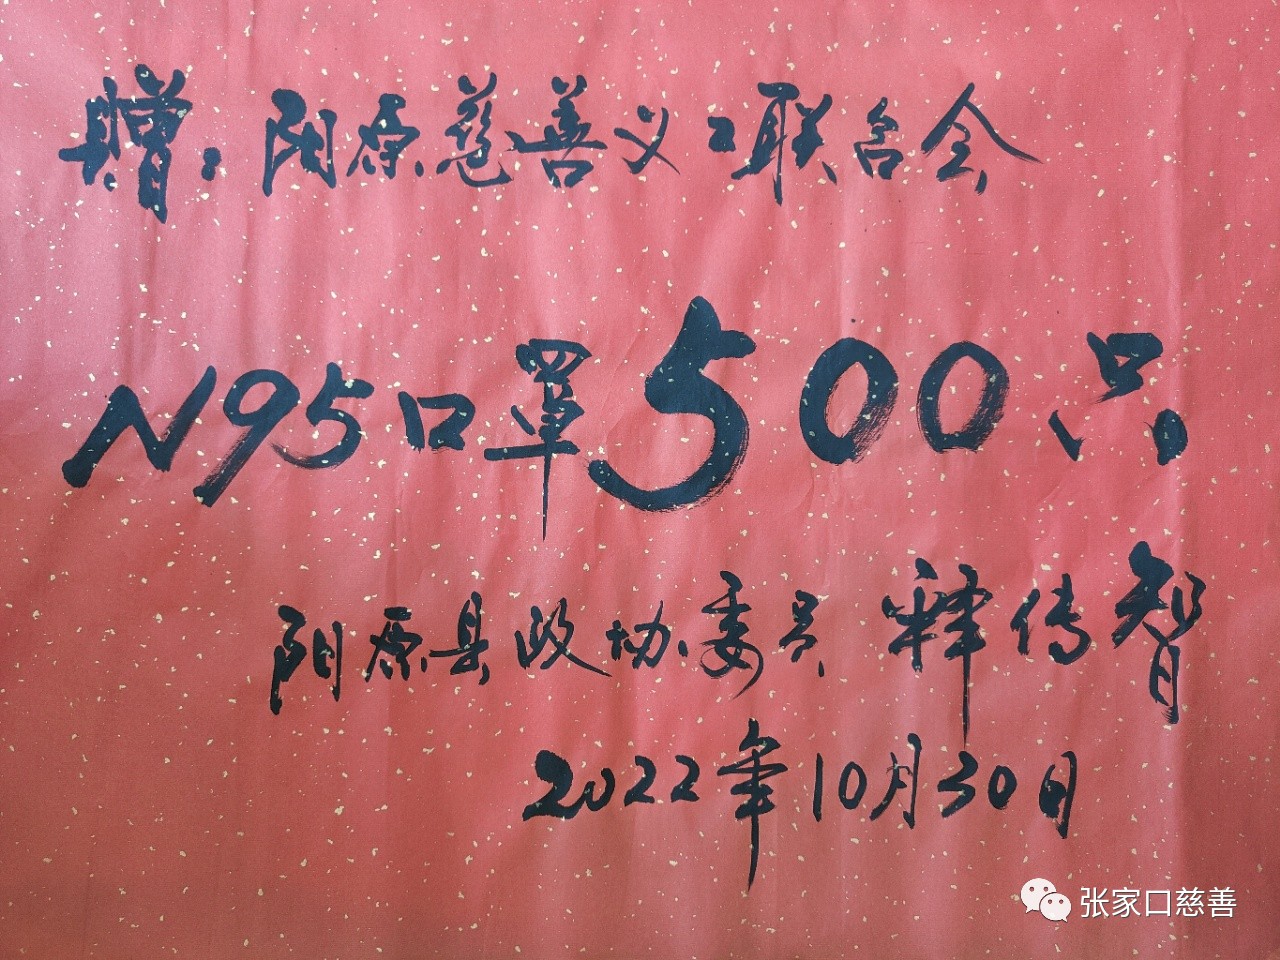 赠:阳原慈善义工联合会
N95口罩500只
阳原县政协委员 释传智
2022年10月30日
张家口慈善